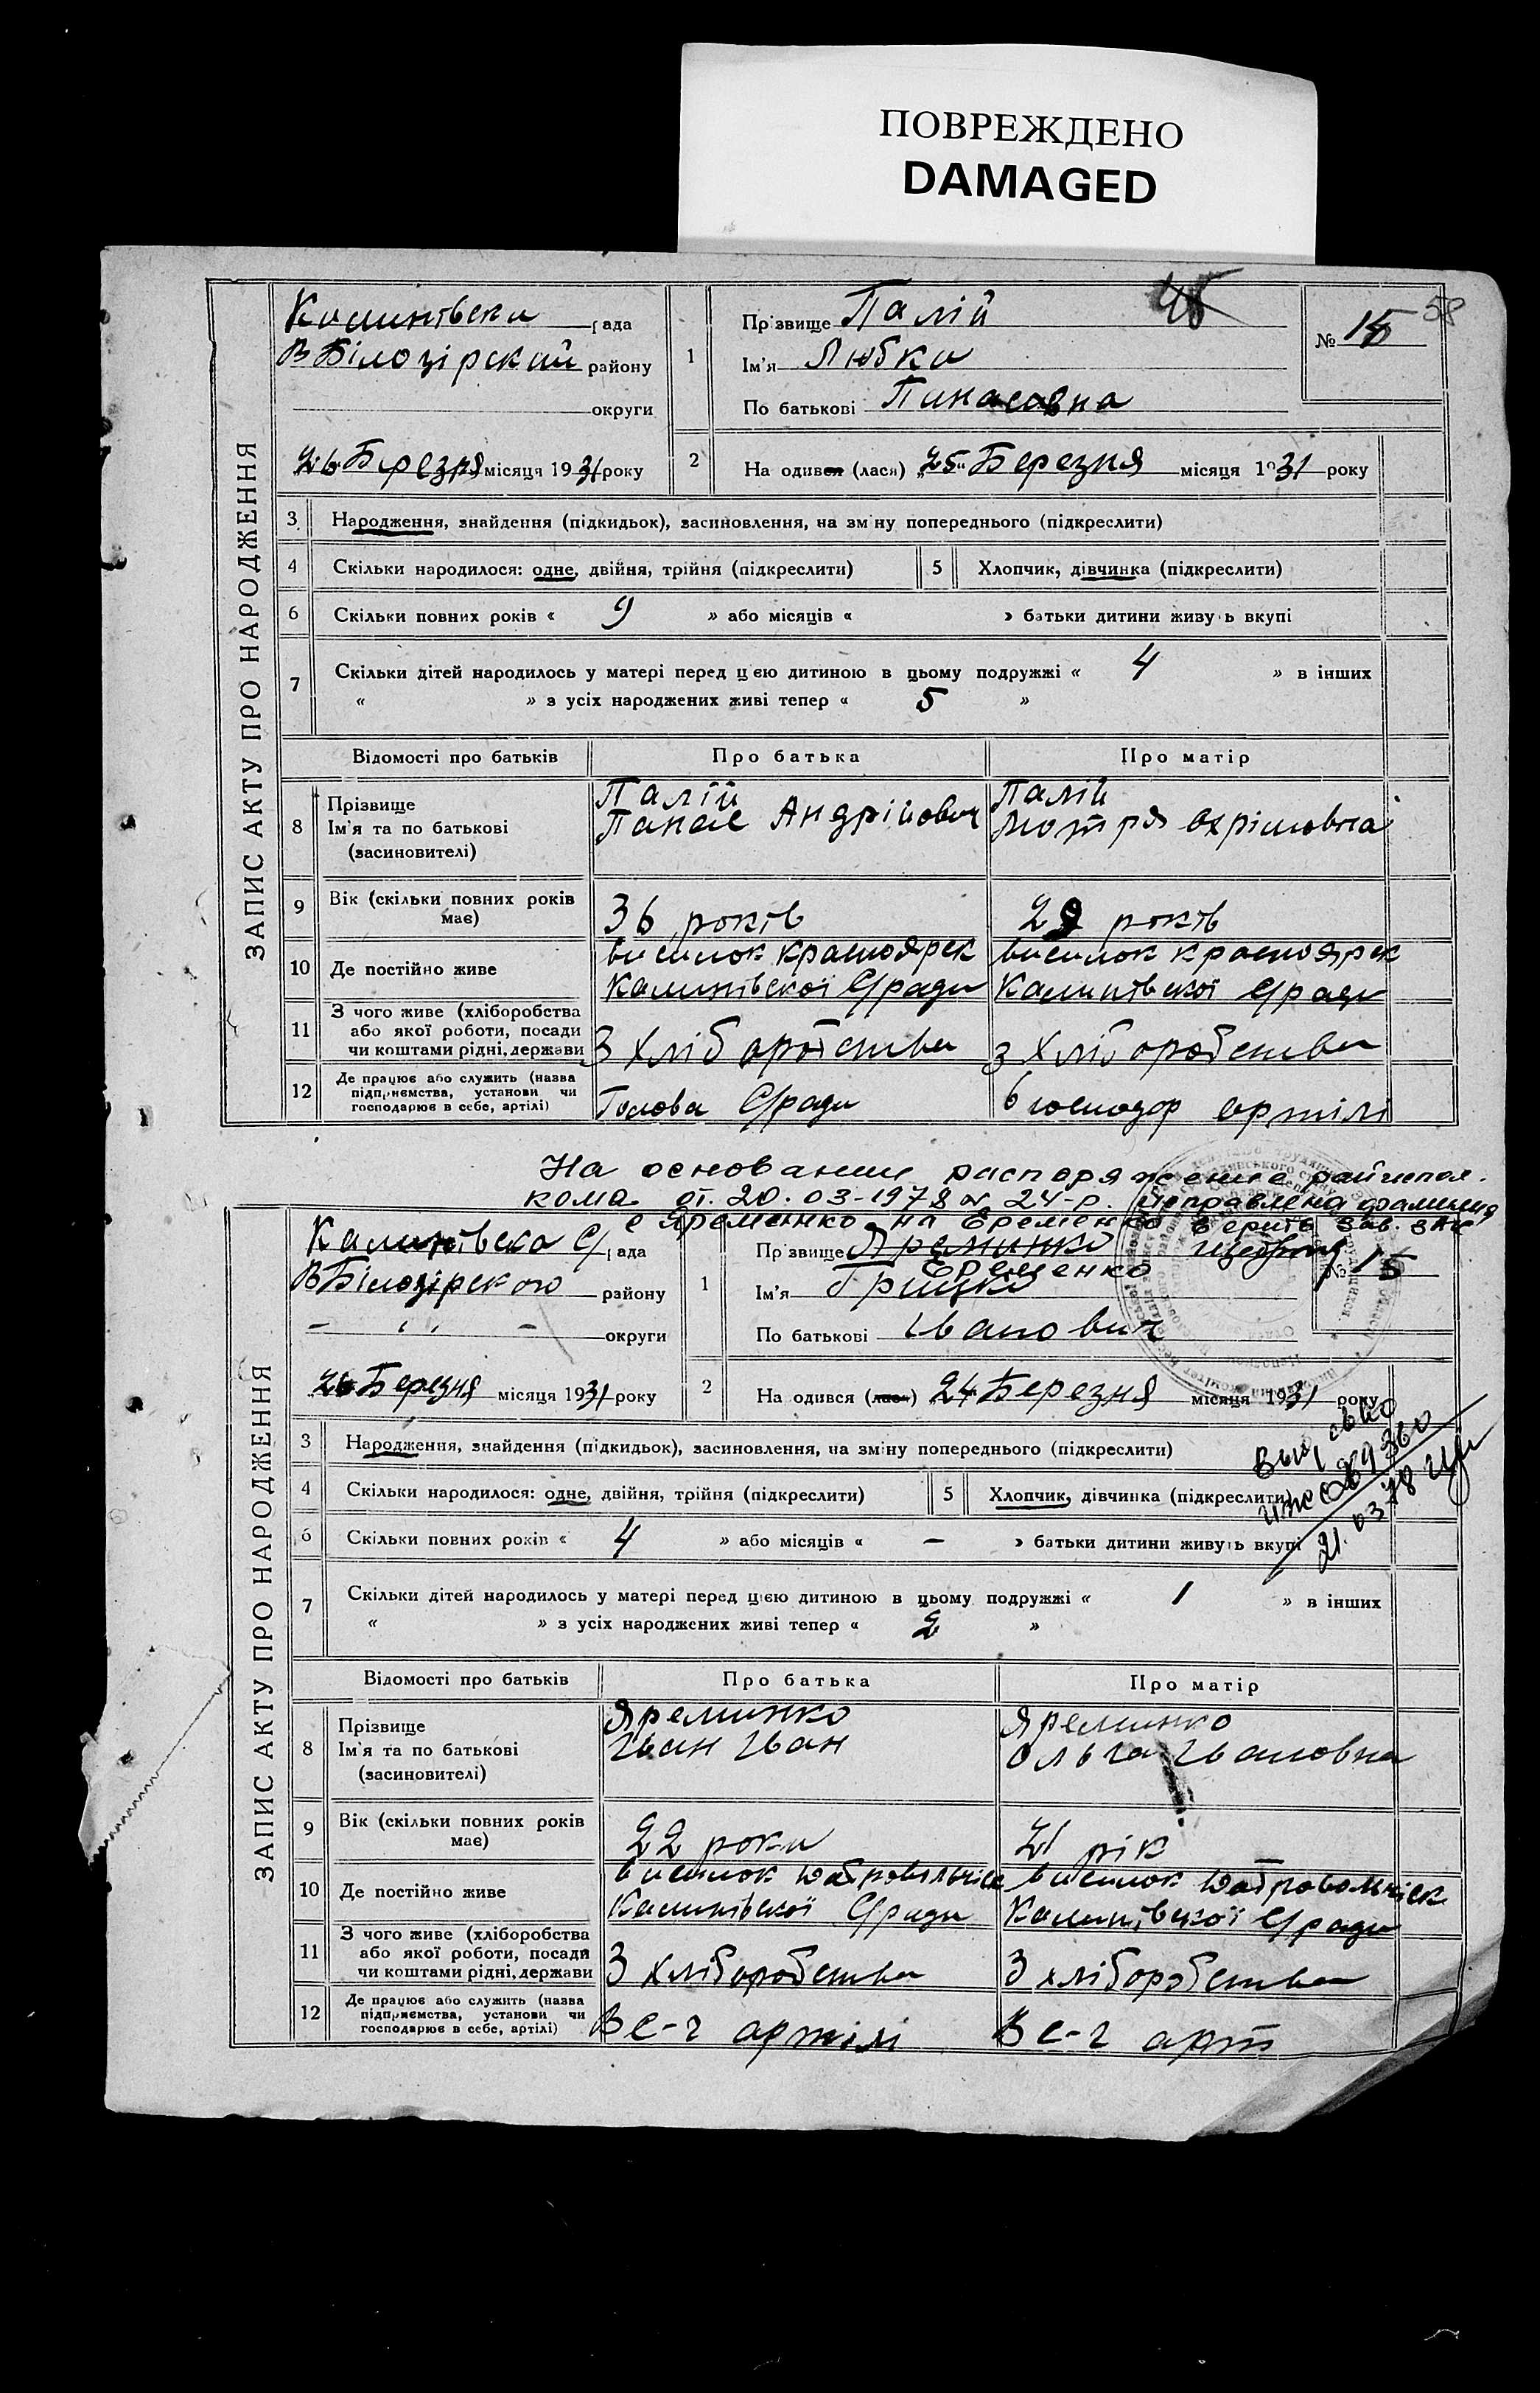 ПОВРЕЖДЕНО
DAMAGED
58
ЗАПИС АКТУ ПРО НАРОДЖЕННЯ
Калинівська рада
В Білозірский району
округи
26 Березня місяця 1931 року
1 Прізвище Палій
Ім'я Любка
По батькові Панасовна
№ 15
2 На одився (лася) „25" Березня місяця 1931 року
3 Народження, знайдення (підкидьок), засиновлення, на зміну попереднього (підкреслити)
4 Скільки народилося: одне, двійня, трійня (підкреслити) 5 Хлопчик, дівчинка (підкреслити)
6 Скільки повних років « 9 » або місяців « » батьки дитини живуть вкупі
7 Скільки дітей народилось у матері перед цією дитиною в цьому подружжі « 4 » в інших
« » з усіх народжених живі тепер « 5 »
Відомості про батьків Про батька Про матір
8 Прізвище Палій Палій
Ім'я та по батькові Панас Андрійович Мотря Охрімовна
(засиновителі)
9 Вік (скільки повних років має) 36 років 29 років
10 Де постійно живе виселок Красноярск виселок Красноярск
Калинівської С/ради Калинівської С/ради
11 З чого живе (хліборобства
або якої роботи, посади
чи коштами рідні, держави З хліборобства З хліборобства
12 Де працює або служить (назва
підприємства, установи чи
господарює в себе, артілі) Голова С/ради в господор артілі
На основание распоряжение райиспол.
кома от. 20.03-1978 № 24-р. исправлена фамилия
с Яременко на Еременко верить зав. ЗАГС
ЗАПИС АКТУ ПРО НАРОДЖЕННЯ
Калинівська С/рада
В Білозірского району
– „ – округи
26 Березня місяця 1931 року
1 Прізвище Яреминко
Еременко
Ім'я Грицко
По батькові Іванович
№ 15
2 На одився (лася) 24 Березня місяця 1931 року
3 Народження, знайдення (підкидьок), засиновлення, на зміну попереднього (підкреслити)
4 Скільки народилося: одне, двійня, трійня (підкреслити) 5 Хлопчик, дівчинка (підкреслити)
21.03.78
6 Скільки повних років « 4 » або місяців « – » батьки дитини живуть вкупі
7 Скільки дітей народилось у матері перед цією дитиною в цьому подружжі « 1 » в інших
« » з усіх народжених живі тепер « 2 »
Відомості про батьків Про батька Про матір
8 Прізвище Яреминко Яреминко
Ім'я та по батькові Іван Іван Ольга Івановна
(засиновителі)
9 Вік (скільки повних років має) 22 роки 21 рік
10 Де постійно живе виселок виселок
Калинівської С/ради Калинівської С/ради
11 З чого живе (хліборобства
або якої роботи, посади
чи коштами рідні, держави З хліборобства З хліборобства
12 Де працює або служить (назва
підприємства, установи чи
господарює в себе, артілі) В с-г артілі В с-г арт